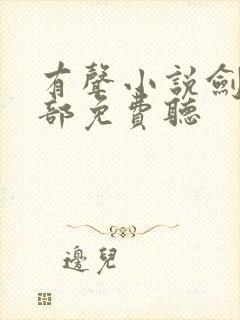 有聲小說劍
部免費聽
邊兒